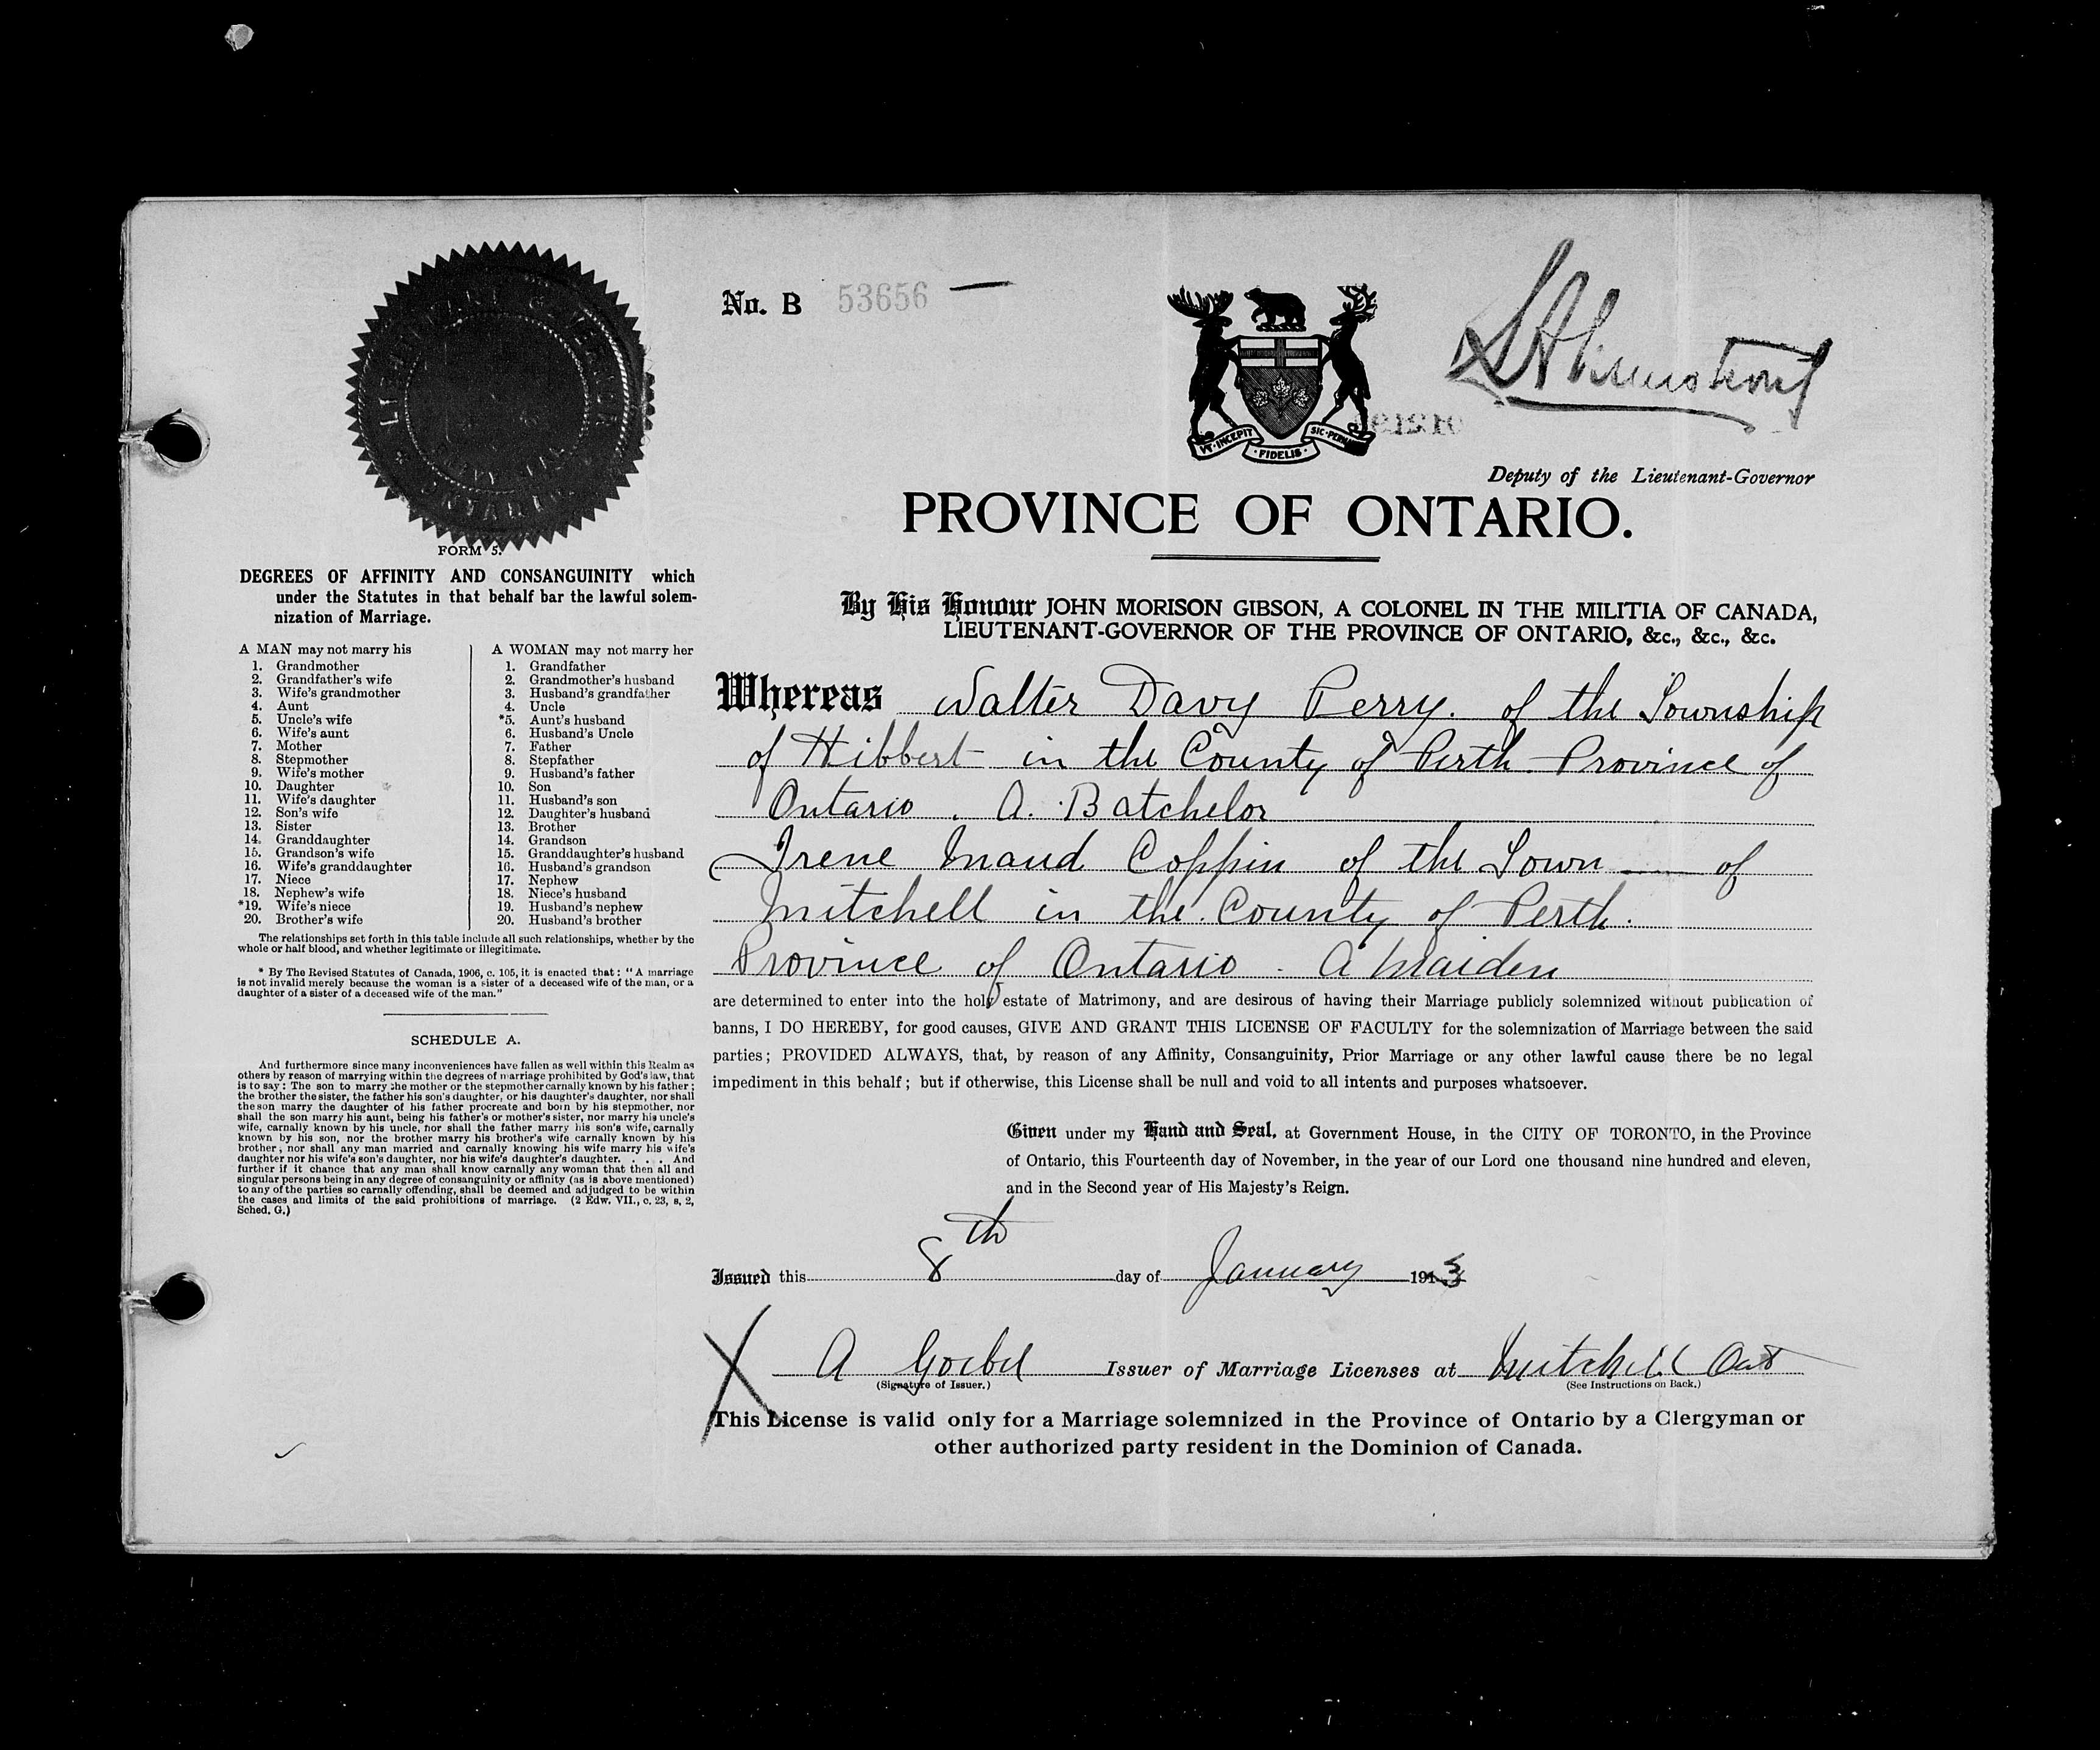 LIEUTENANT GOVERNOR
ONTARIO
No. B 53656
VT·INCEPIT
·FIDELIS·
SIC·PERM
Deputy of the Lieutenant-Governor
PROVINCE OF ONTARIO.
FORM 5.
DEGREES OF AFFINITY AND CONSANGUINITY which
under the Statutes in that behalf bar the lawful solem-
nization of Marriage.
A MAN may not marry his
1. Grandmother
2. Grandfather's wife
3. Wife's grandmother
4. Aunt
5. Uncle's wife
6. Wife's aunt
7. Mother
8. Stepmother
9. Wife's mother
10. Daughter
11. Wife's daughter
12. Son's wife
13. Sister
14. Granddaughter
15. Grandson's wife
16. Wife's granddaughter
17. Niece
18. Nephew's wife
*19. Wife's niece
20. Brother's wife
A WOMAN may not marry her
1. Grandfather
2. Grandmother's husband
3. Husband's grandfather
4. Uncle
*5. Aunt's husband
6. Husband's Uncle
7. Father
8. Stepfather
9. Husband's father
10. Son
11. Husband's son
12. Daughter's husband
13. Brother
14. Grandson
15. Granddaughter's husband
16. Husband's grandson
17. Nephew
18. Niece's husband
19. Husband's nephew
20. Husband's brother
The relationships set forth in this table include all such relationships, whether by the
whole or half blood, and whether legitimate or illegitimate.
* By The Revised Statutes of Canada, 1906, c. 105, it is enacted that: "A marriage
is not invalid merely because the woman is a sister of a deceased wife of the man, or a
daughter of a sister of a deceased wife of the man."
SCHEDULE A.
And furthermore since many inconveniences have fallen as well within this Realm as
others by reason of marrying within the degrees of marriage prohibited by God's law, that
is to say: The son to marry the mother or the stepmother carnally known by his father;
the brother the sister, the father his son's daughter, or his daughter's daughter, nor shall
the son marry the daughter of his father procreate and born by his stepmother, nor
shall the son marry his aunt, being his father's or mother's sister, nor marry his uncle's
wife, carnally known by his uncle, nor shall the father marry his son's wife, carnally
known by his son, nor the brother marry his brother's wife carnally known by his
brother, nor shall any man married and carnally knowing his wife marry his wife's
daughter nor his wife's son's daughter, nor his wife's daughter's daughter. . . . And
further if it chance that any man shall know carnally any woman that then all and
singular persons being in any degree of consanguinity or affinity (as is above mentioned)
to any of the parties so carnally offending, shall be deemed and adjudged to be within
the cases and limits of the said prohibitions of marriage. (2 Edw. VII., c. 23, s. 2,
Sched. G.)
By His Honour JOHN MORISON GIBSON, A COLONEL IN THE MILITIA OF CANADA,
LIEUTENANT-GOVERNOR OF THE PROVINCE OF ONTARIO, &c., &c., &c.
Whereas Walter Davy Perry. of the Township
of Hibbert in the County of Perth Province of
Ontario . A. Batchelor
Irene Maud Coppin of the Town of
Mitchell in the County of Perth.
Province of Ontario . A Maiden
are determined to enter into the holy estate of Matrimony, and are desirous of having their Marriage publicly solemnized without publication of
banns, I DO HEREBY, for good causes, GIVE AND GRANT THIS LICENSE OF FACULTY for the solemnization of Marriage between the said
parties; PROVIDED ALWAYS, that, by reason of any Affinity, Consanguinity, Prior Marriage or any other lawful cause there be no legal
impediment in this behalf; but if otherwise, this License shall be null and void to all intents and purposes whatsoever.
Given under my Hand and Seal, at Government House, in the CITY OF TORONTO, in the Province
of Ontario, this Fourteenth day of November, in the year of our Lord one thousand nine hundred and eleven,
and in the Second year of His Majesty's Reign.
Issued this 8th day of January 1913
A Goebel Issuer of Marriage Licenses at Mitchell Ont
(Signature of Issuer.) (See Instructions on Back.)
This License is valid only for a Marriage solemnized in the Province of Ontario by a Clergyman or
other authorized party resident in the Dominion of Canada.